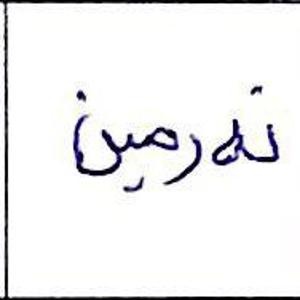 نەرمین